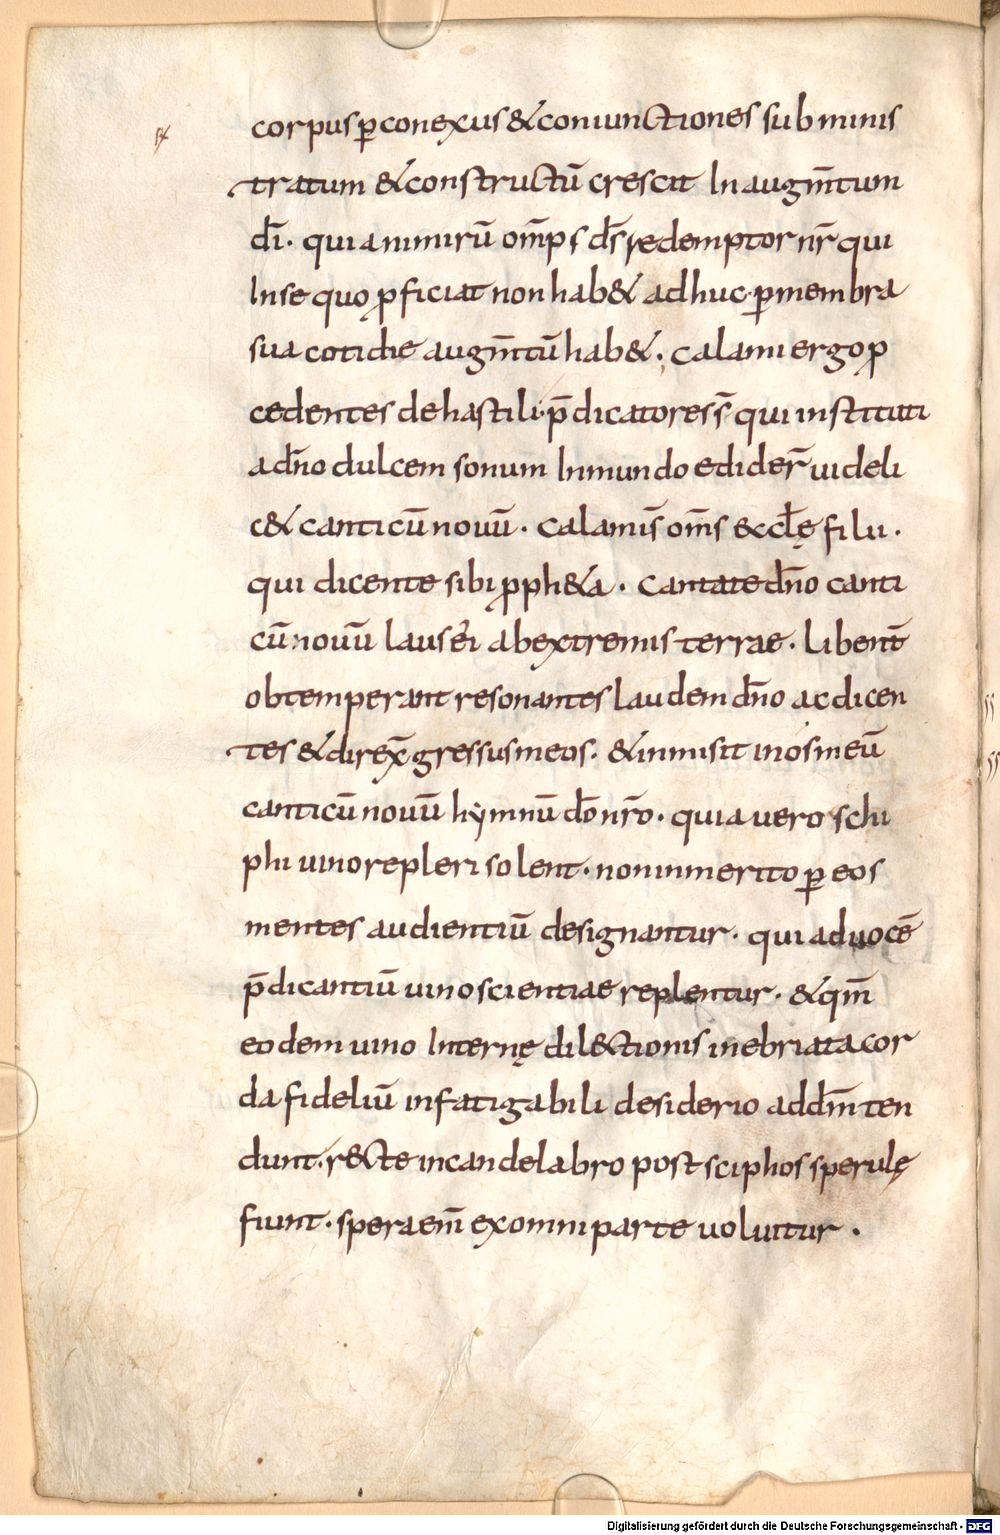 corpus p̱ conexus & coniunctiones subminis
tratum & constructū crescit In augm̄tum
dī. quia nimirū om̄ps ds̄ redemptor nr̄ qui
In se quo ꝓficiat non hab& adhuc. ꝑ membra
sua cotidie augm̄tū hab&. Calami ergo ꝓ
cedentes de hastili. p̄dicatores s̄ qui instituti
a dn̄o dulcem sonum In mundo edider̄ uideli
c& canticū nouū. Calami s̄ om̄s & eclę filii.
qui dicente sibi ꝓph&a. Cantate dn̄o canti
cū nouū laus ei ab extremis terrae. Libent̄
obtemperant resonantes laudem dn̄o ac dicen
tes & direx̄ gressus meos. & inmisit in os meū
canticū nouū hymnū do nr̄o. quia uero schi
phi uino repleri solent. non inmerito ꝑ eos
mentes audientiū designantur. qui ad uocē
p̄dicantiū uino scientiae replentur. & qm̄
eodem uino Internę dil&ctionis inebriata cor
da fideliū infatigabili desiderio ad dm̄ ten
dunt. r&cte in candelabro post sciphos sperulę
fiunt. spera em̄ ex omni parte uoluitur.
Digitalisierung gefördert durch die Deutsche Forschungsgemeinschaft - DFG